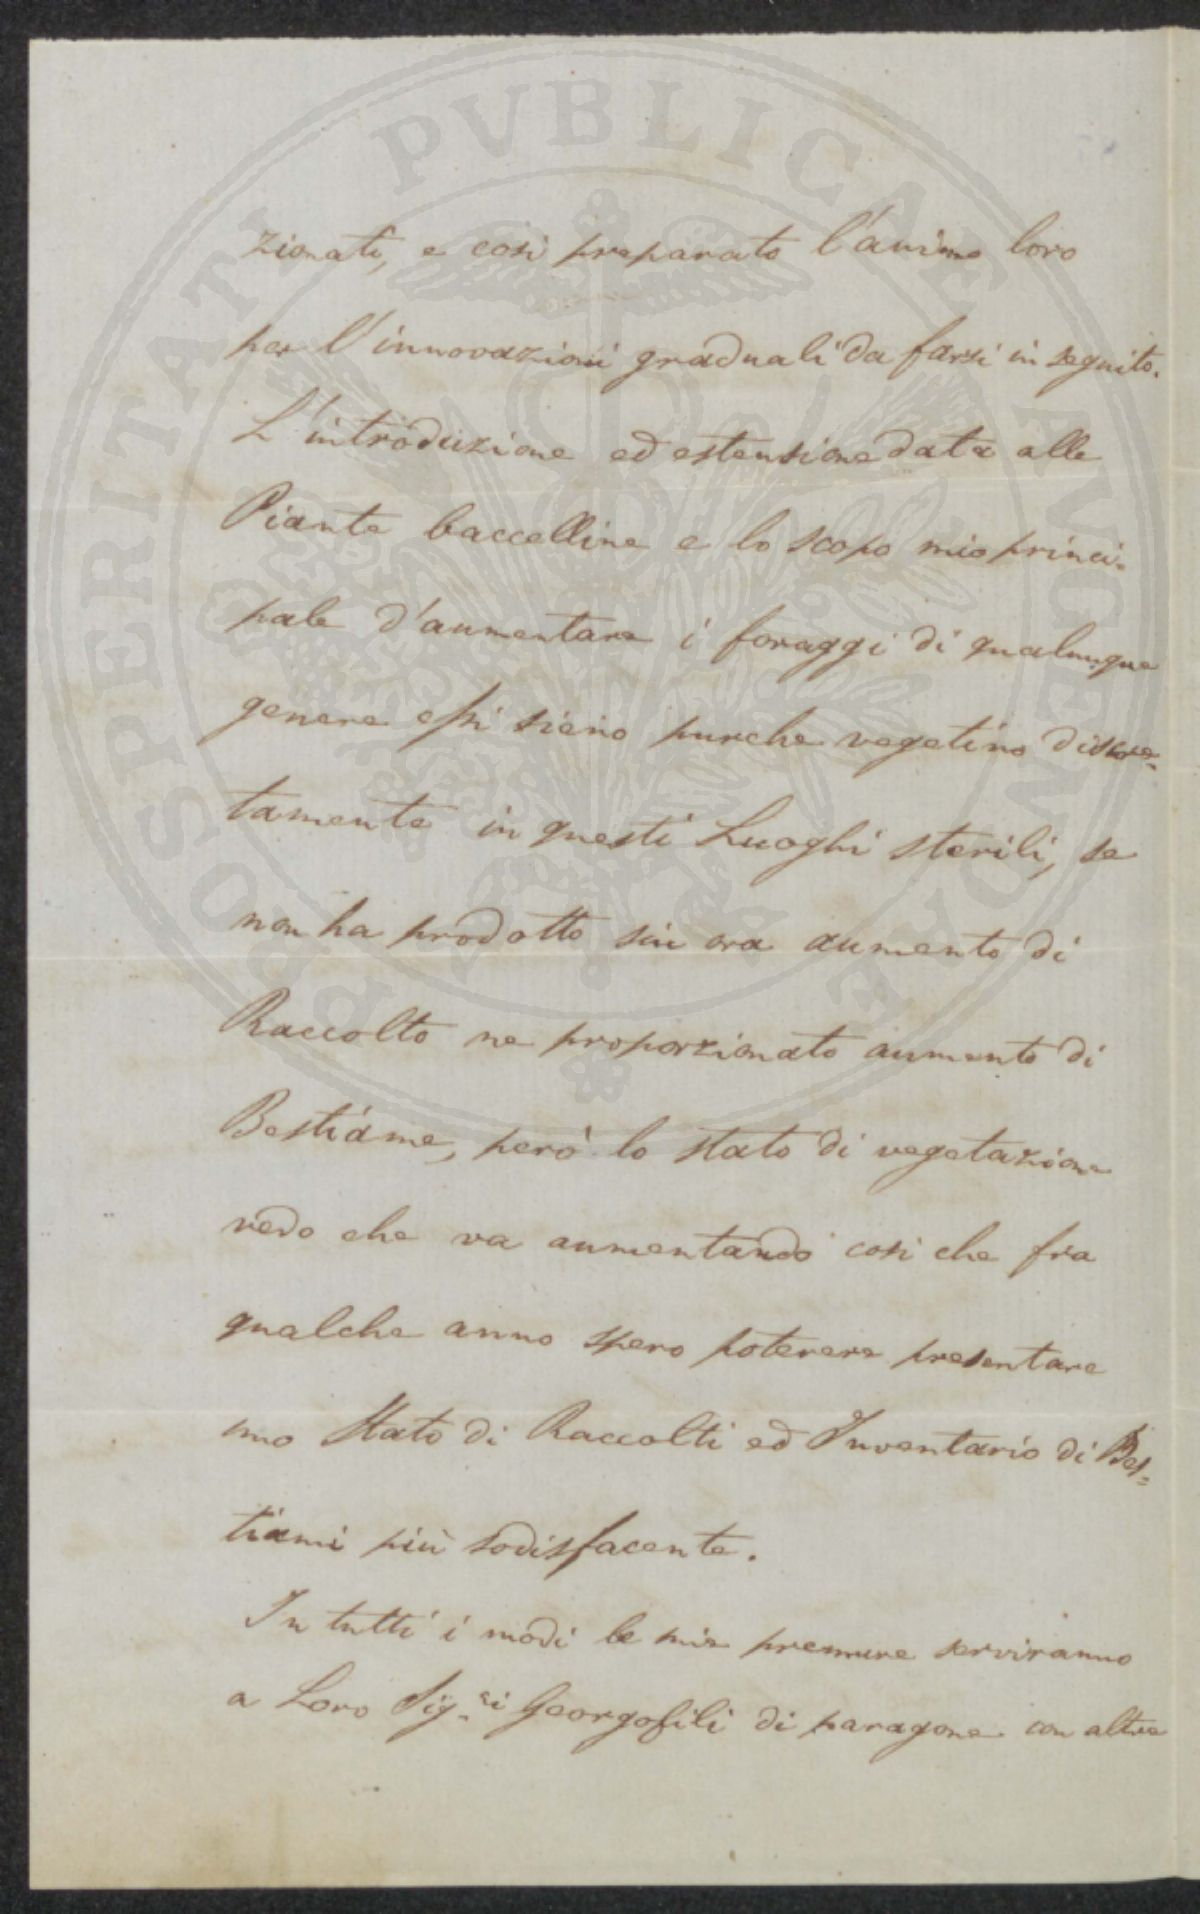 PROSPERITATI PVBLICAE AVGENDAE
zionati, e così preparato l'animo loro
per l'innovazioni graduali da farsi in seguito.
L'introduzione ed estensione data alle
Piante baccelline e lo scopo mio princi=
pale d'aumentare i foraggi di qualunque
genere essi sieno purche vegetino discre=
tamente in questi Luoghi sterili, se
non ha prodotto sin ora aumento di
Raccolto ne proporzionato aumento di
Bestiame, però lo stato di vegetazione
vedo che va aumentando così che fra
qualche anno spero poterere presentare
uno Stato di Raccolti ed Inventario di Bes=
tiami più sodisfacente.
In tutti i modi le mie premure serviranno
a Loro Sig.ri Georgofili di paragone con altre